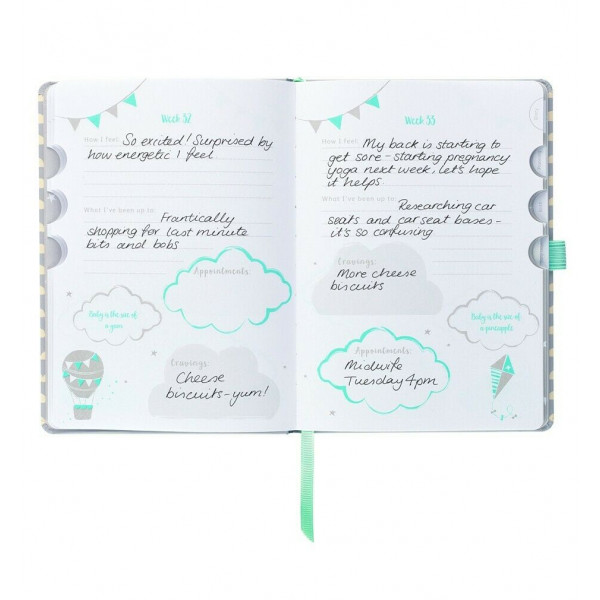 Week 32
How I feel: So excited! Surprised by
how energetic I feel.
What I've been up to: Frantically
shopping for last minute
bits and bobs
Appointments:
Baby is the size of
a
Cravings:
Cheese
biscuits-yum!
Week 33
How I feel: My back is starting to
get sore - starting pregnancy
yoga next week. Let's hope
it helps.
What I've been up to: Researching car
seats and car seat bases -
it's so confusing
Cravings:
More cheese
biscuits
Baby is the size of
a pineapple
Appointments:
Midwife
Tuesday 4pm